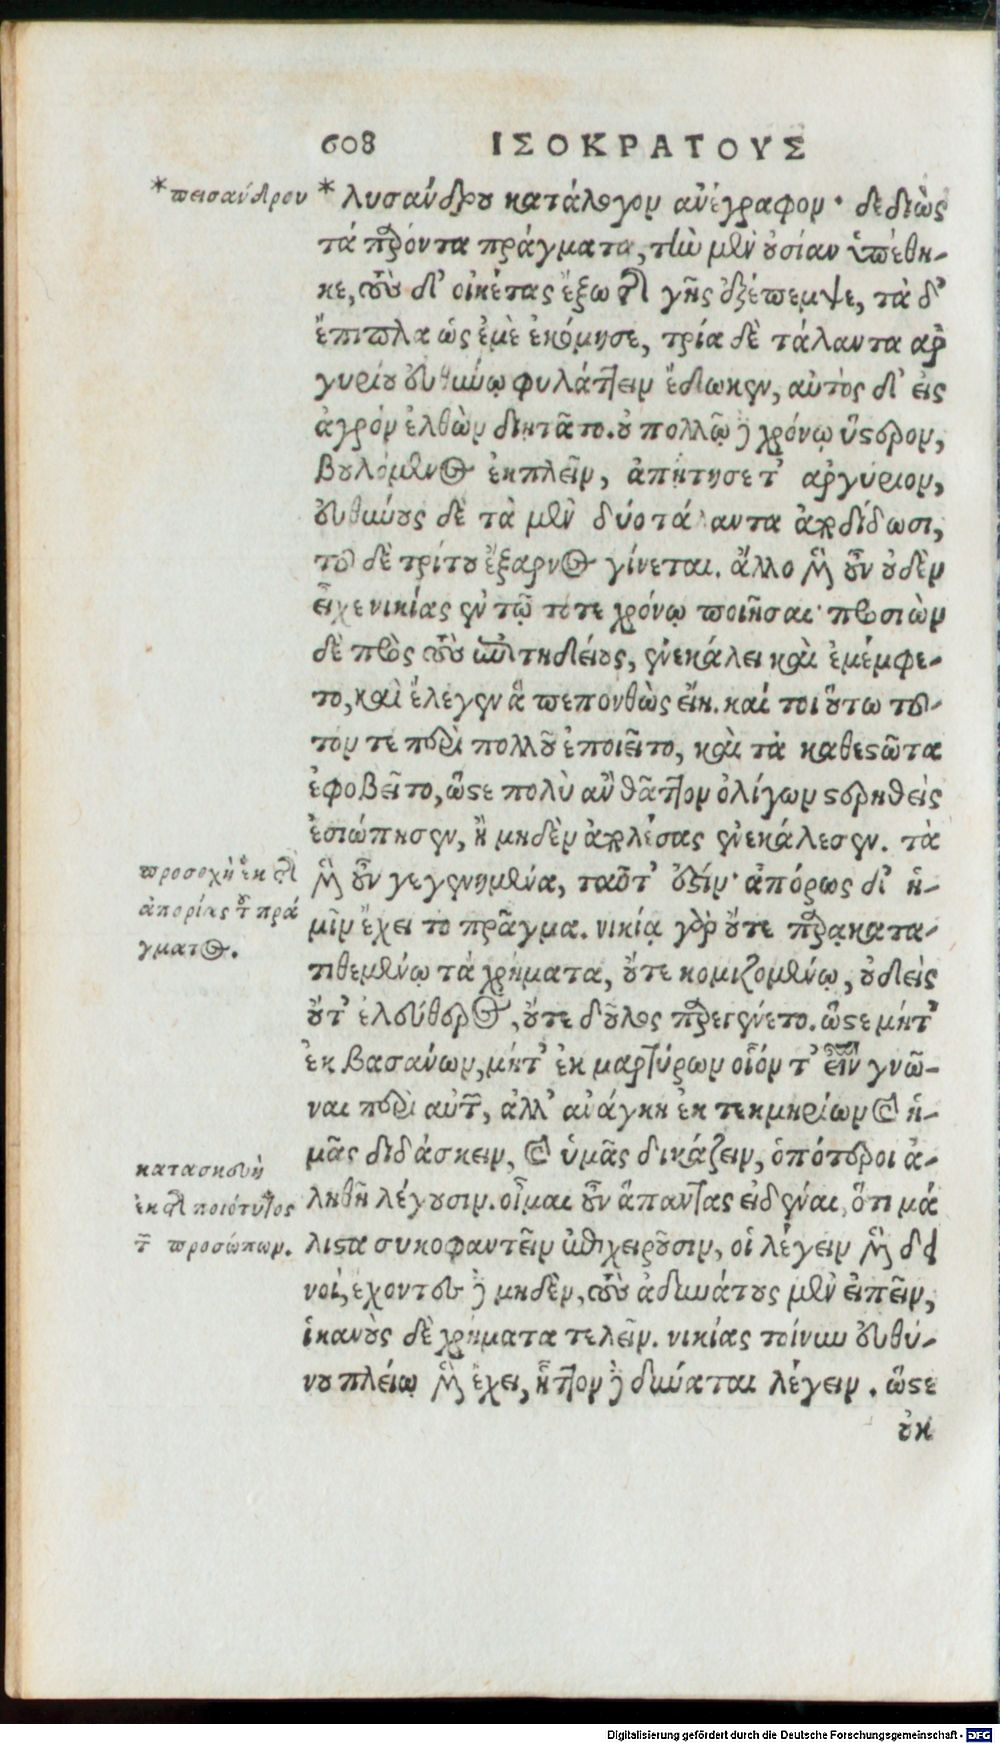 608 ΙΣΟΚΡΑΤΟΥΣ
*πεισάνδρου
* λυσάνδρου κατάλογον ἀνέγραφον· δεδιὼς
τὰ παρόντα πράγματα, τὴν μὲν οὐσίαν ὑπέθη-
κε, τοὺς δ' οἰκέτας ἔξω τῆς γῆς ἐξέπεμψε, τὰ δ'
ἔπιπλα ὡς ἐμὲ ἐκόμησε, τρία δὲ τάλαντα ἀρ
γυρίου εὐθύνῳ φυλάττειν ἔδωκεν, αὐτὸς δ' εἰς
ἀγρὸν ἐλθὼν διῃτᾶτο. οὐ πολλῷ δὲ χρόνῳ ὕστερον,
βουλόμενος ἐκπλεῖν, ἀπῄτησε τ' ἀργύριον,
εὐθύνους δὲ τὰ μὲν δύο τάλαντα ἀποδίδωσι,
τοῦ δὲ τρίτου ἔξαρνος γίνεται. ἄλλο μὲν οὖν οὐδὲν
εἶχε νικίας ἐν τῷ τότε χρόνῳ ποιῆσαι· προσιὼν
δὲ πρὸς τοὺς ἐπιτηδείους, ἐνεκάλει καὶ ἐμέμφε-
το, καὶ ἔλεγεν ἃ πεπονθὼς εἴη. καί τοι οὕτω τοῦ-
τον τε περὶ πολλοῦ ἐποιεῖτο, καὶ τὰ καθεστῶτα
ἐφοβεῖτο, ὥστε πολὺ ἂν θᾶττον ὀλίγων στερηθεὶς
ἐσιώπησεν, ἢ μηδὲν ἀπολέσας ἐνεκάλεσεν. τὰ
προσοχὴ ἐκ τῆς
ἀπορίας τοῦ πρά
γματος.
μὲν οὖν γεγενημένα, ταῦτ' ἐστίν· ἀπόρως δ' ἡ-
μῖν ἔχει τὸ πρᾶγμα. νικίᾳ γὰρ οὔτε παρακατα-
τιθεμένῳ τὰ χρήματα, οὔτε κομιζομένῳ, οὐδεὶς
οὔτ' ἐλεύθερος, οὔτε δοῦλος παρεγένετο. ὥστε μήτ'
ἐκ βασάνων, μήτ' ἐκ μαρτύρων οἷόν τ' εἶναι γνῶ-
ναι περὶ αὐτῶν, ἀλλ' ἀνάγκη ἐκ τεκμηρίων καὶ ἡ-
μᾶς διδάσκειν, καὶ ὑμᾶς δικάζειν, ὁπότεροι ἀ-
κατασκευὴ
ἐκ τῆς ποιότητος
τῶν προσώπων.
ληθῆ λέγουσιν. οἶμαι οὖν ἅπαντας εἰδέναι, ὅτι μά
λιστα συκοφαντεῖν ἐπιχειροῦσιν, οἱ λέγειν μὲν δει
νοί, ἔχοντες δὲ μηδὲν, τοὺς ἀδυνάτους μὲν εἰπεῖν,
ἱκανοὺς δὲ χρήματα τελεῖν. νικίας τοίνυν εὐθύ-
νου πλείω μὲν ἔχει, ἧττον δὲ δύναται λέγειν. ὥστε
οὐκ
Digitalisierung gefördert durch die Deutsche Forschungsgemeinschaft - DFG